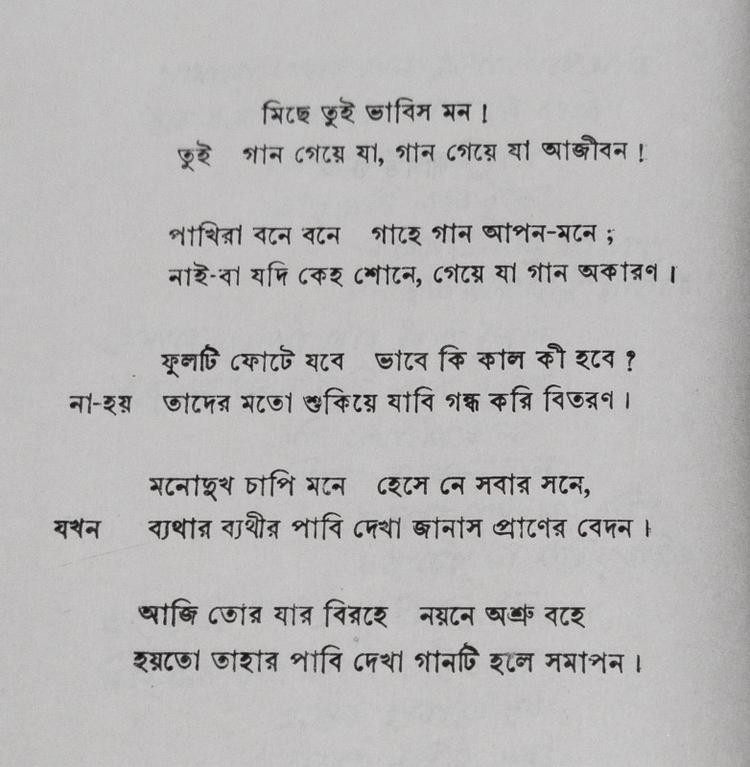 মিছে তুই ভাবিস মন।
তুই গান গেয়ে যা, গান গেয়ে যা আজীবন!
পাখিরা বনে বনে গাহে গান আপন-মনে;
নাই-বা যদি কেহ শোনে, গেয়ে যা গান অকারণ।
ফুলটি ফোটে যবে ভাবে কি কাল কী হবে?
না-হয় তাদের মতো শুকিয়ে যাবি গন্ধ করি বিতরণ।
মনোদুখ চাপি মনে হেসে নে সবার সনে,
যখন ব্যথার ব্যথীর পাবি দেখা জানাস প্রাণের বেদন।
আজি তোর যার বিরহে নয়নে অশ্রু বহে
হয়তো তাহার পাবি দেখা গানটি হলে সমাপন।